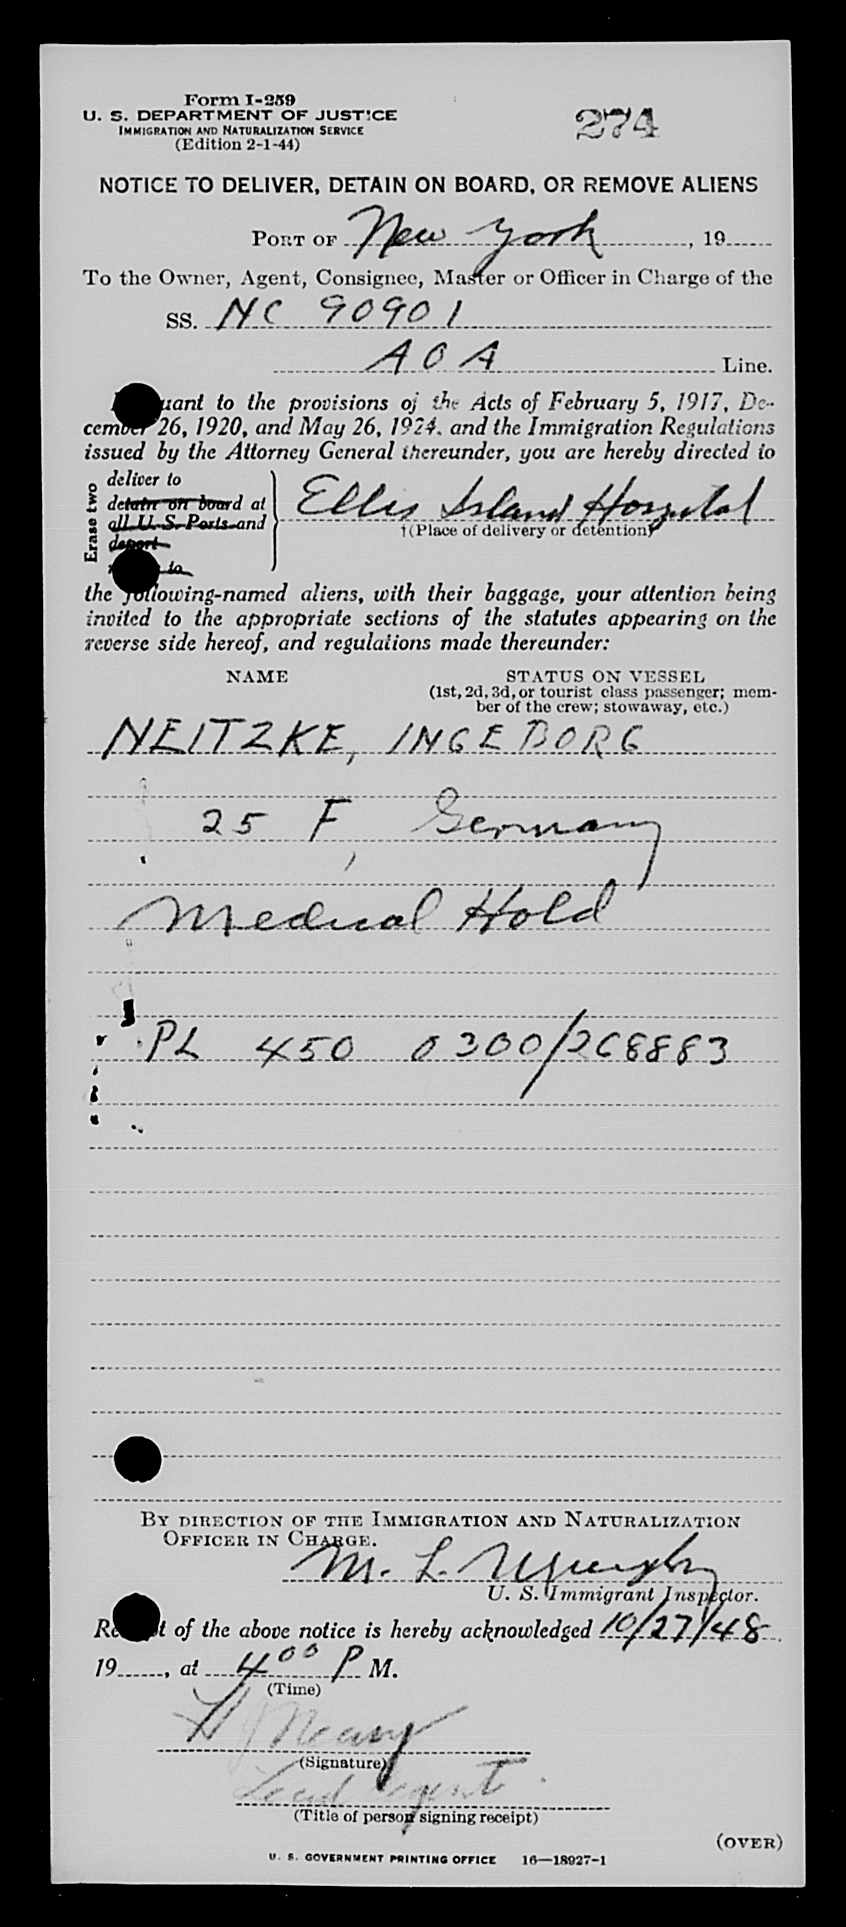 Form I-259
U. S. DEPARTMENT OF JUSTICE
IMMIGRATION AND NATURALIZATION SERVICE
(Edition 2-1-44)
274
NOTICE TO DELIVER, DETAIN ON BOARD, OR REMOVE ALIENS
PORT OF New York, 19
To the Owner, Agent, Consignee, Master or Officer in Charge of the
SS. NC 90901
AOA Line.
uant to the provisions of the Acts of February 5, 1917, De-
cember 26, 1920, and May 26, 1924, and the Immigration Regulations
issued by the Attorney General thereunder, you are hereby directed to
Erase two
deliver to
detain on board at
all U. S. Ports and
deport
to
Ellis Island Hospital
†(Place of delivery or detention)
the following-named aliens, with their baggage, your attention being
invited to the appropriate sections of the statutes appearing on the
reverse side hereof, and regulations made thereunder:
NAME
STATUS ON VESSEL
(1st, 2d, 3d, or tourist class passenger; mem-
ber of the crew; stowaway, etc.)
NEITZKE, INGEBORG
25 F, Germany
Medical Hold
PL 450 0300/268883
BY DIRECTION OF THE IMMIGRATION AND NATURALIZATION
OFFICER IN CHARGE.
M. L.
U. S. Immigrant Inspector.
Receipt of the above notice is hereby acknowledged 10/27/48
19, at 4 00 P M.
(Time)
(Signature)
Agent
(Title of person signing receipt)
(OVER)
U. S. GOVERNMENT PRINTING OFFICE 16—18927-1